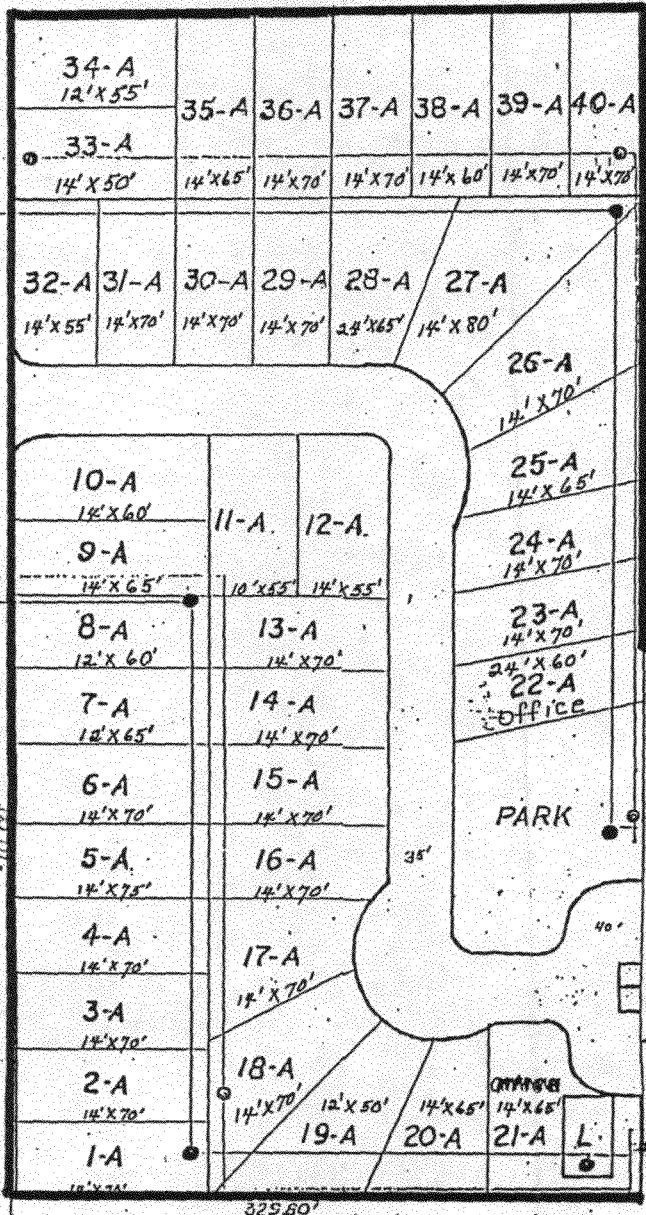 34-A
12'X55'
33-A
14'X50'
35-A
14'X65'
36-A
14'X70'
37-A
14'X70'
38-A
14'X60'
39-A
14'X70'
40-A
14'X70'
32-A
14'X55'
31-A
14'X70'
30-A
14'X70'
29-A
14'X70'
28-A
24'X65'
27-A
14'X80'
26-A
14'X70'
25-A
14'X65'
24-A
14'X70'
23-A
14'X70'
24'X60'
22-A
office
PARK
10-A
14'X60'
9-A
14'X65'
11-A
10'X55'
12-A
14'X55'
8-A
12'X60'
13-A
14'X70'
7-A
12'X65'
14-A
14'X70'
6-A
14'X70'
15-A
14'X70'
5-A
14'X75'
16-A
14'X70'
35'
4-A
14'X70'
17-A
14'X70'
40'
3-A
14'X70'
2-A
14'X70'
18-A
14'X70'
12'X50'
19-A
14'X65'
20-A
14'X65'
21-A
L
1-A
14'X70'
325.80'